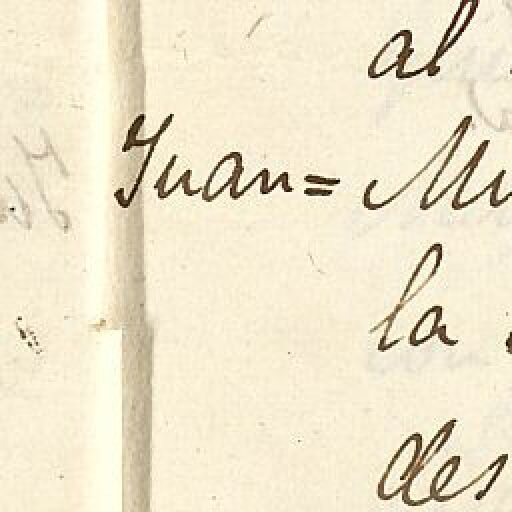 al
Juan= Mu
la
des